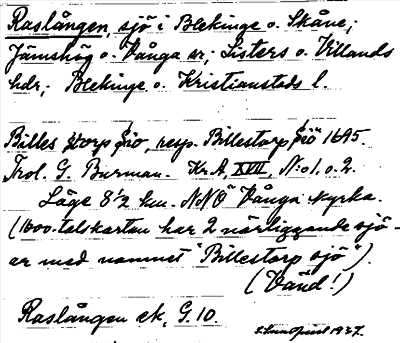 Raslången, sjö i Blekinge o. Skåne;
Jämshög o. Vånga sr; Listers o. Villands
hdr; Blekinge o. Kristianstads l.
Billes torp sio, resp. Billestorp siö 1695.
Trol. G. Burman. Kr. A, XVII, N:o 1, o. 2.
Läge 8 1/2 km. NNÖ Vånga kyrka.
(1000-telskartan har 2 närliggande sjö-
ar med namnet "Billestorp sjö").
(Vänd!)
Raslången ek, G. 10.
1937.